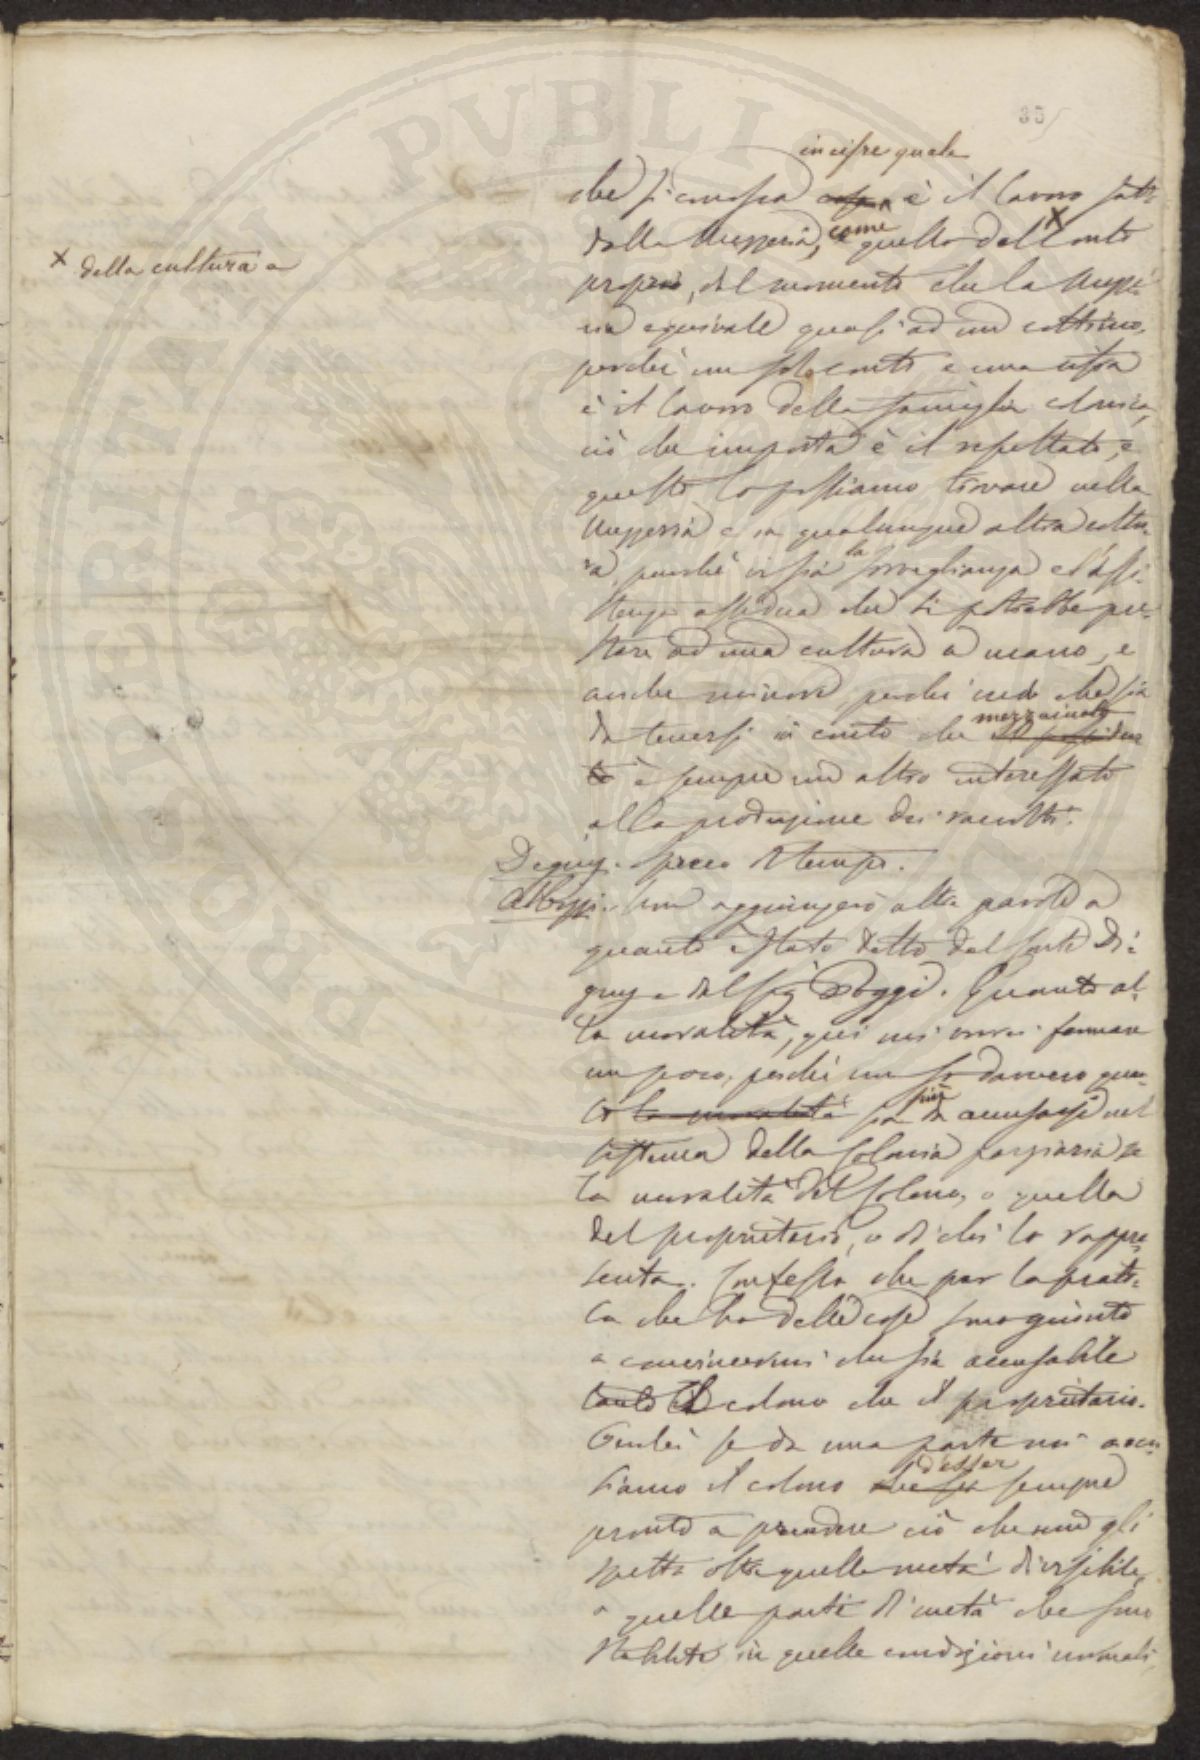 35
in cifre quale
che si conosca cosa è il lavoro fatto
dalla Mezzeria, come quello dell x onto
x della cultura a
proprio, dal momento che la Mezze
ria equivale quasi ad un cottimo,
perchè un solo conto e una cifra
è il lavoro della famiglia colonica,
ciò che importa è il resultato, e
questo lo possiamo trovare nella
Mezzeria e in qualunque altra coltu-
ra, purchè vi sia la sorveglianza e l'assi-
stenza assidua che si potrebbe pre-
stare ad una cultura a mano, e
anche minore perchè credo che sia
da tenersi in conto che mezzaiuolo
è sempre un altro interessato
alla produzione dei raccolti.
Degny. spreco di tempo.
non aggiungerò altre parole a
quanto è stato detto dal Conte De-
gny e dal Sig. Poggi. Quanto al-
la moralità, quì mi vorrei fermare
un poco, perchè non so davvero qua-
le la moralità sia più da accusarsi nel
sistema della Colonia parziaria se
la moralità del Colono, o quella
del proprietario, o di chi lo rappre-
senta. Confesso che per la prati-
ca che ho delle cose sono giunto
a convincermi che sia accusabile
tanto il colono che il proprietario.
se da una parte noi accu-
siamo il colono che sia d'esser sempre
pronto a prendere ciò che non gli
spetta oltre quella metà divisibile,
o quelle parti di metà che sono
stabilite in quelle condizioni normali,